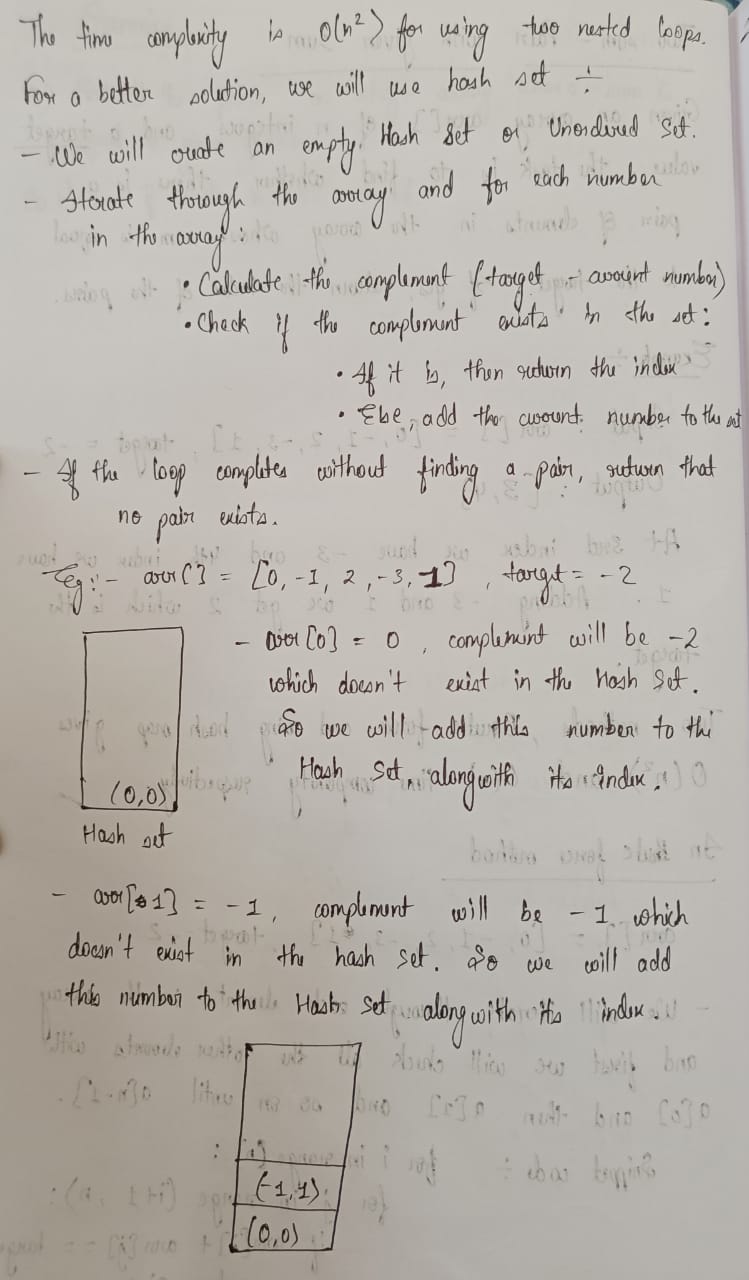 The time complexity is O(n²) for using two nested loops.
For a better solution, we will use hash set ÷
- We will create an empty Hash Set or Unordered Set.
- Iterate through the array and for each number
in the array :
• Calculate the complement (target - current number)
• Check if the complement exists in the set :
• If it is, then return the index
• Else, add the current number to the set
- If the loop completes without finding a pair, return that
no pair exists.
Eg :- arr[] = [0, -1, 2, -3, 1] , target = -2
- arr[0] = 0 , complement will be -2
which doesn't exist in the Hash Set.
So we will add this number to the
Hash Set, alongwith its index.
(0,0)
Hash set
- arr[1] = -1, complement will be -1 which
doesn't exist in the hash set. So we will add
this number to the Hash Set alongwith its index.
(-1,1)
(0,0)